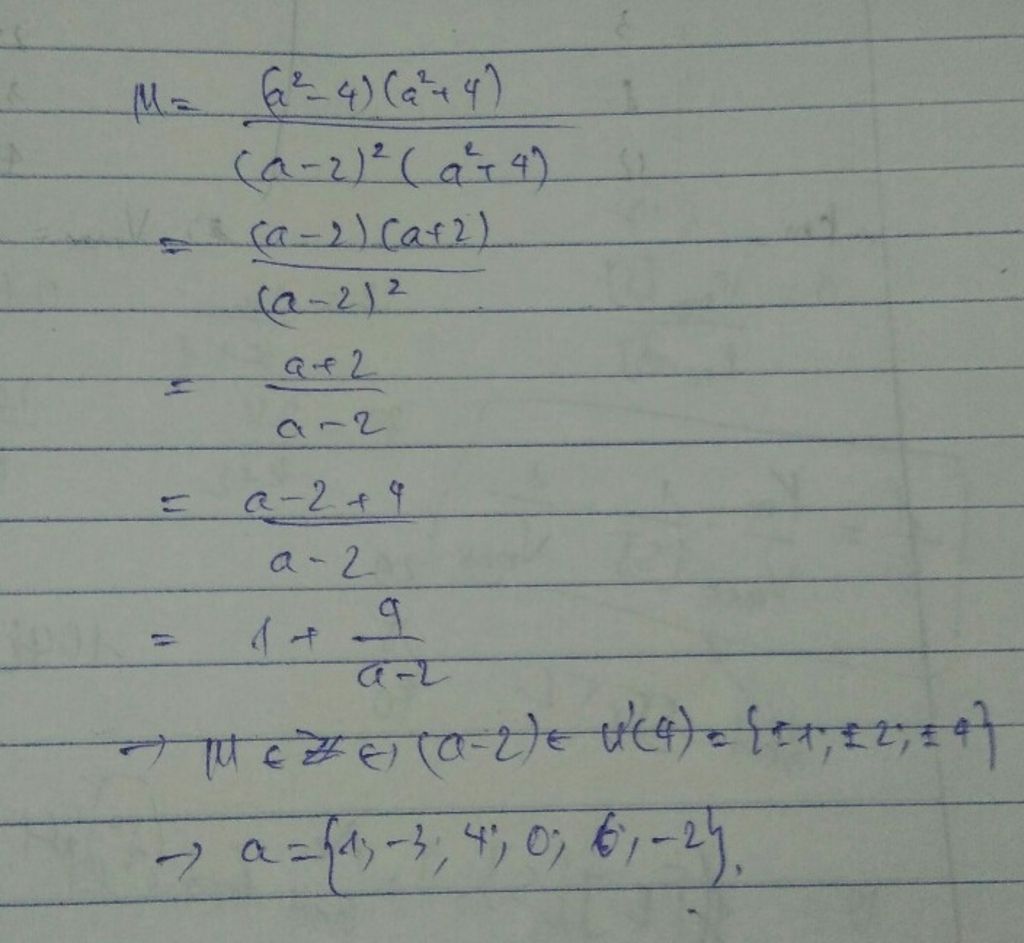 M = (a² - 4)(a² + 4)
(a - 2)² (a² + 4)
= (a - 2)(a + 2)
(a - 2)²
= a + 2
a - 2
= a - 2 + 4
a - 2
= 1 + 4
a - 2
→ M ∈ Z ⇔ (a-2) ∈ Ư(4) = {±1; ±2; ±4}
→ a = {1; -3; 4; 0; 6; -2}.